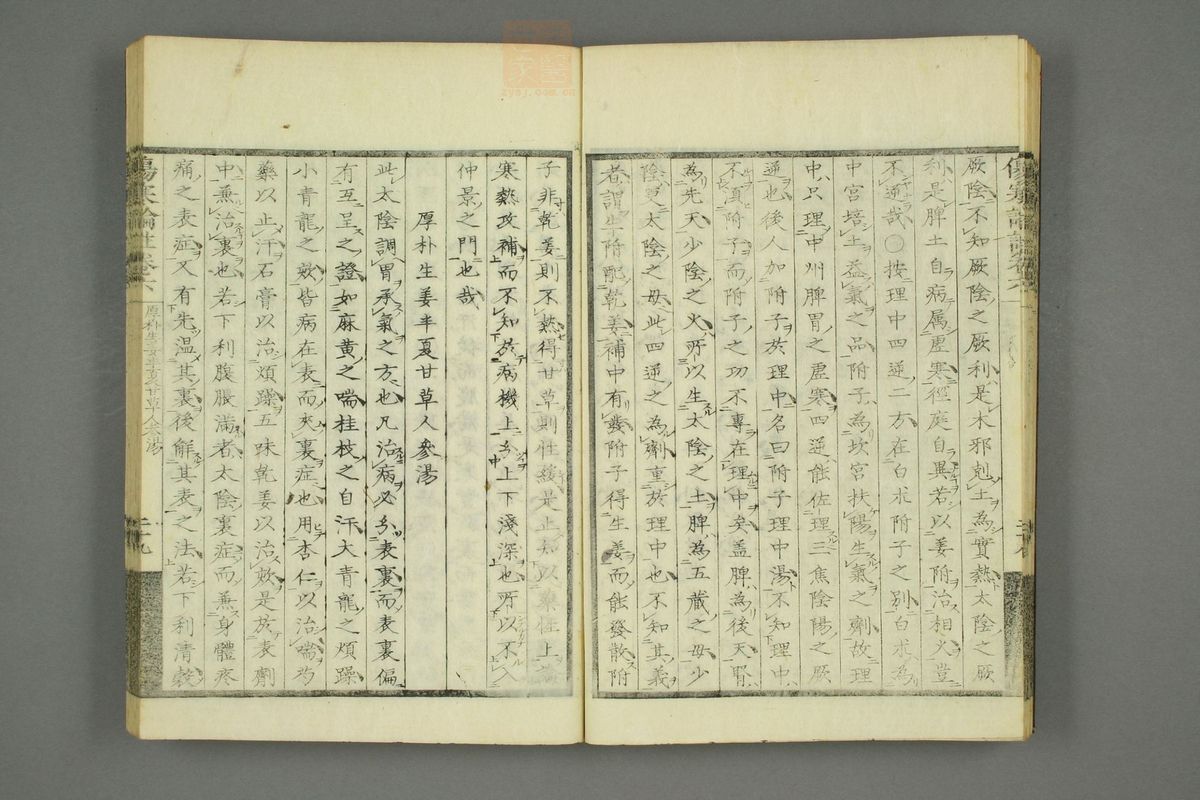 厥陰不知厥陰之厥利是木邪剋土為實熱太陰之厥
利是脾土自病属虛寒徑庭自異若以姜附治相火豈
不逆哉〇按理中四逆二方在白求附子之別白求為
中宮培土益氣之品附子為坎宮扶陽生氣之劑故理
中只理中州脾胃之虛寒四逆能佐理三焦陰陽之厥
逆也後人加附子於理中名曰附子理中湯不知理中
不須附子而附子之功不專在理中矣盖脾為後天腎
為先天少陰之火所以生太陰之土脾為五藏之母少
陰更太陰之母此四逆之為劑重於理中也不知其義
者謂生附配乾姜補中有發附子得生姜而能發散附
子非乾姜則不熱得甘草則性緩是止知以藥性上論
寒熱攻補而不知於病機上分上下淺深也所以不入
仲景之門也哉
厚朴生姜半夏甘草人參湯
此太陰調胃承氣之方也凡治病必分表裏而表裏偏
有互呈之證如麻黄之喘桂枝之自汗大青龍之煩躁
小青龍之欬皆病在表而夾裏症也用杏仁以治喘芍
藥以止汗石膏以治煩躁五味乾姜以治欬是於表劑
中兼治裏也若下利腹脹滿者太陰裏症而兼身體疼
痛之表症又有先温其裏後解其表之法若下利清穀
傷寒論註卷六
厚朴生姜半夏甘草人參湯
二十九